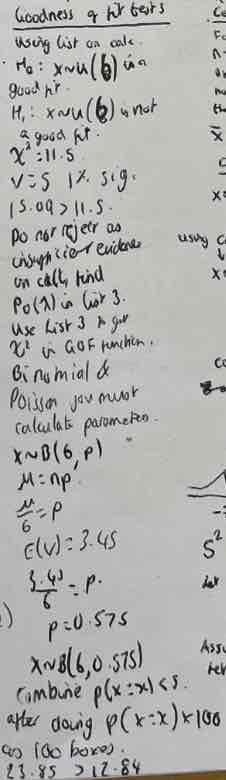 Goodness of fit tests
using list on calc.
H₀: X~U(6) is a
good fit.
H₁: X~U(6) is not
a good fit.
χ²=11.5
V=5 1% sig.
15.09 > 11.5.
Do not reject as
insufficient evidence
on calc, find
Po(λ) in list 3.
Use List 3 to get
χ² in GOF function.
Binomial &
Poisson you must
calculate parameter.
X~B(6,p)
μ=np
μ/6=p
E(V)=3.45
3.45/6=p.
p=0.575
X~B(6,0.575)
combine p(x=x)<5.
after doing p(x=x)×100
as 100 boxes.
23.85 >12.84
using C
S²
Assu